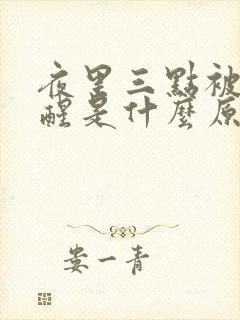 夜里三點被
醒是什麼原
娄一青